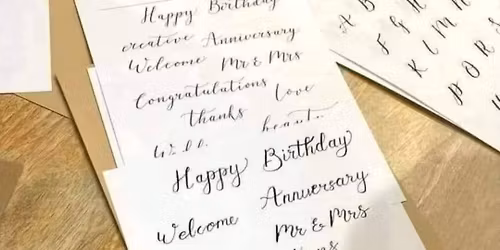 Happy Birthday
creative Anniversary
Welcome Mr & Mrs
Congratulations
thanks love
Happy Birthday
Anniversary
Welcome
Mr & Mrs
A B
F G H
K L M N
P Q R